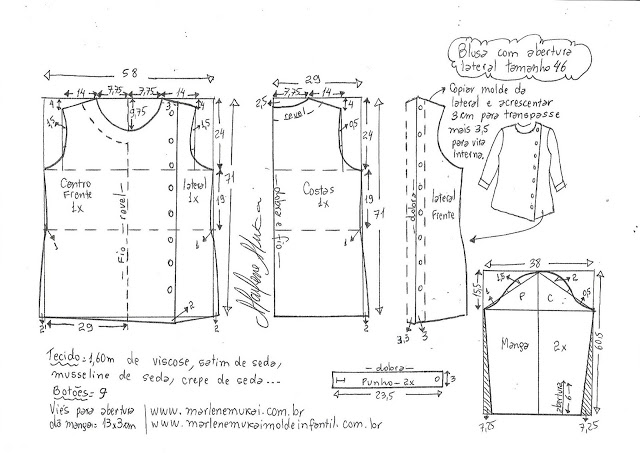 Blusa com abertura
lateral tamanho 46
58
14 7,75 7,75 14
4 9,75 3 4
1,5 1,5
24
71
19
Centro
Frente
1x
lateral
1x
Fio - revel
1 1
2
2 29 2
29
7,75 14
2,5 revel 4
0,5
24
71
19
Costas
1x
dobra e fio
1
2
Marlene Mukai
Copiar molde da
lateral e acrescentar
3 cm para transpasse
mais 3,5
para vira
interna.
dobra
lateral
Frente
3,5 3
38
15,5 1,5 2
1 P C 0,5
Manga 2x
60,5
abertura
6
7,25 7,25
Tecido = 1,60m de viscose, satim de seda,
musseline de seda, crepe de seda...
Botões = 9
Viés para abertura
da manga = 13x3cm
www.marlenemukai.com.br
www.marlenemukaimoldeinfantil.com.br
- dobra -
Punho - 2x 3
23,5